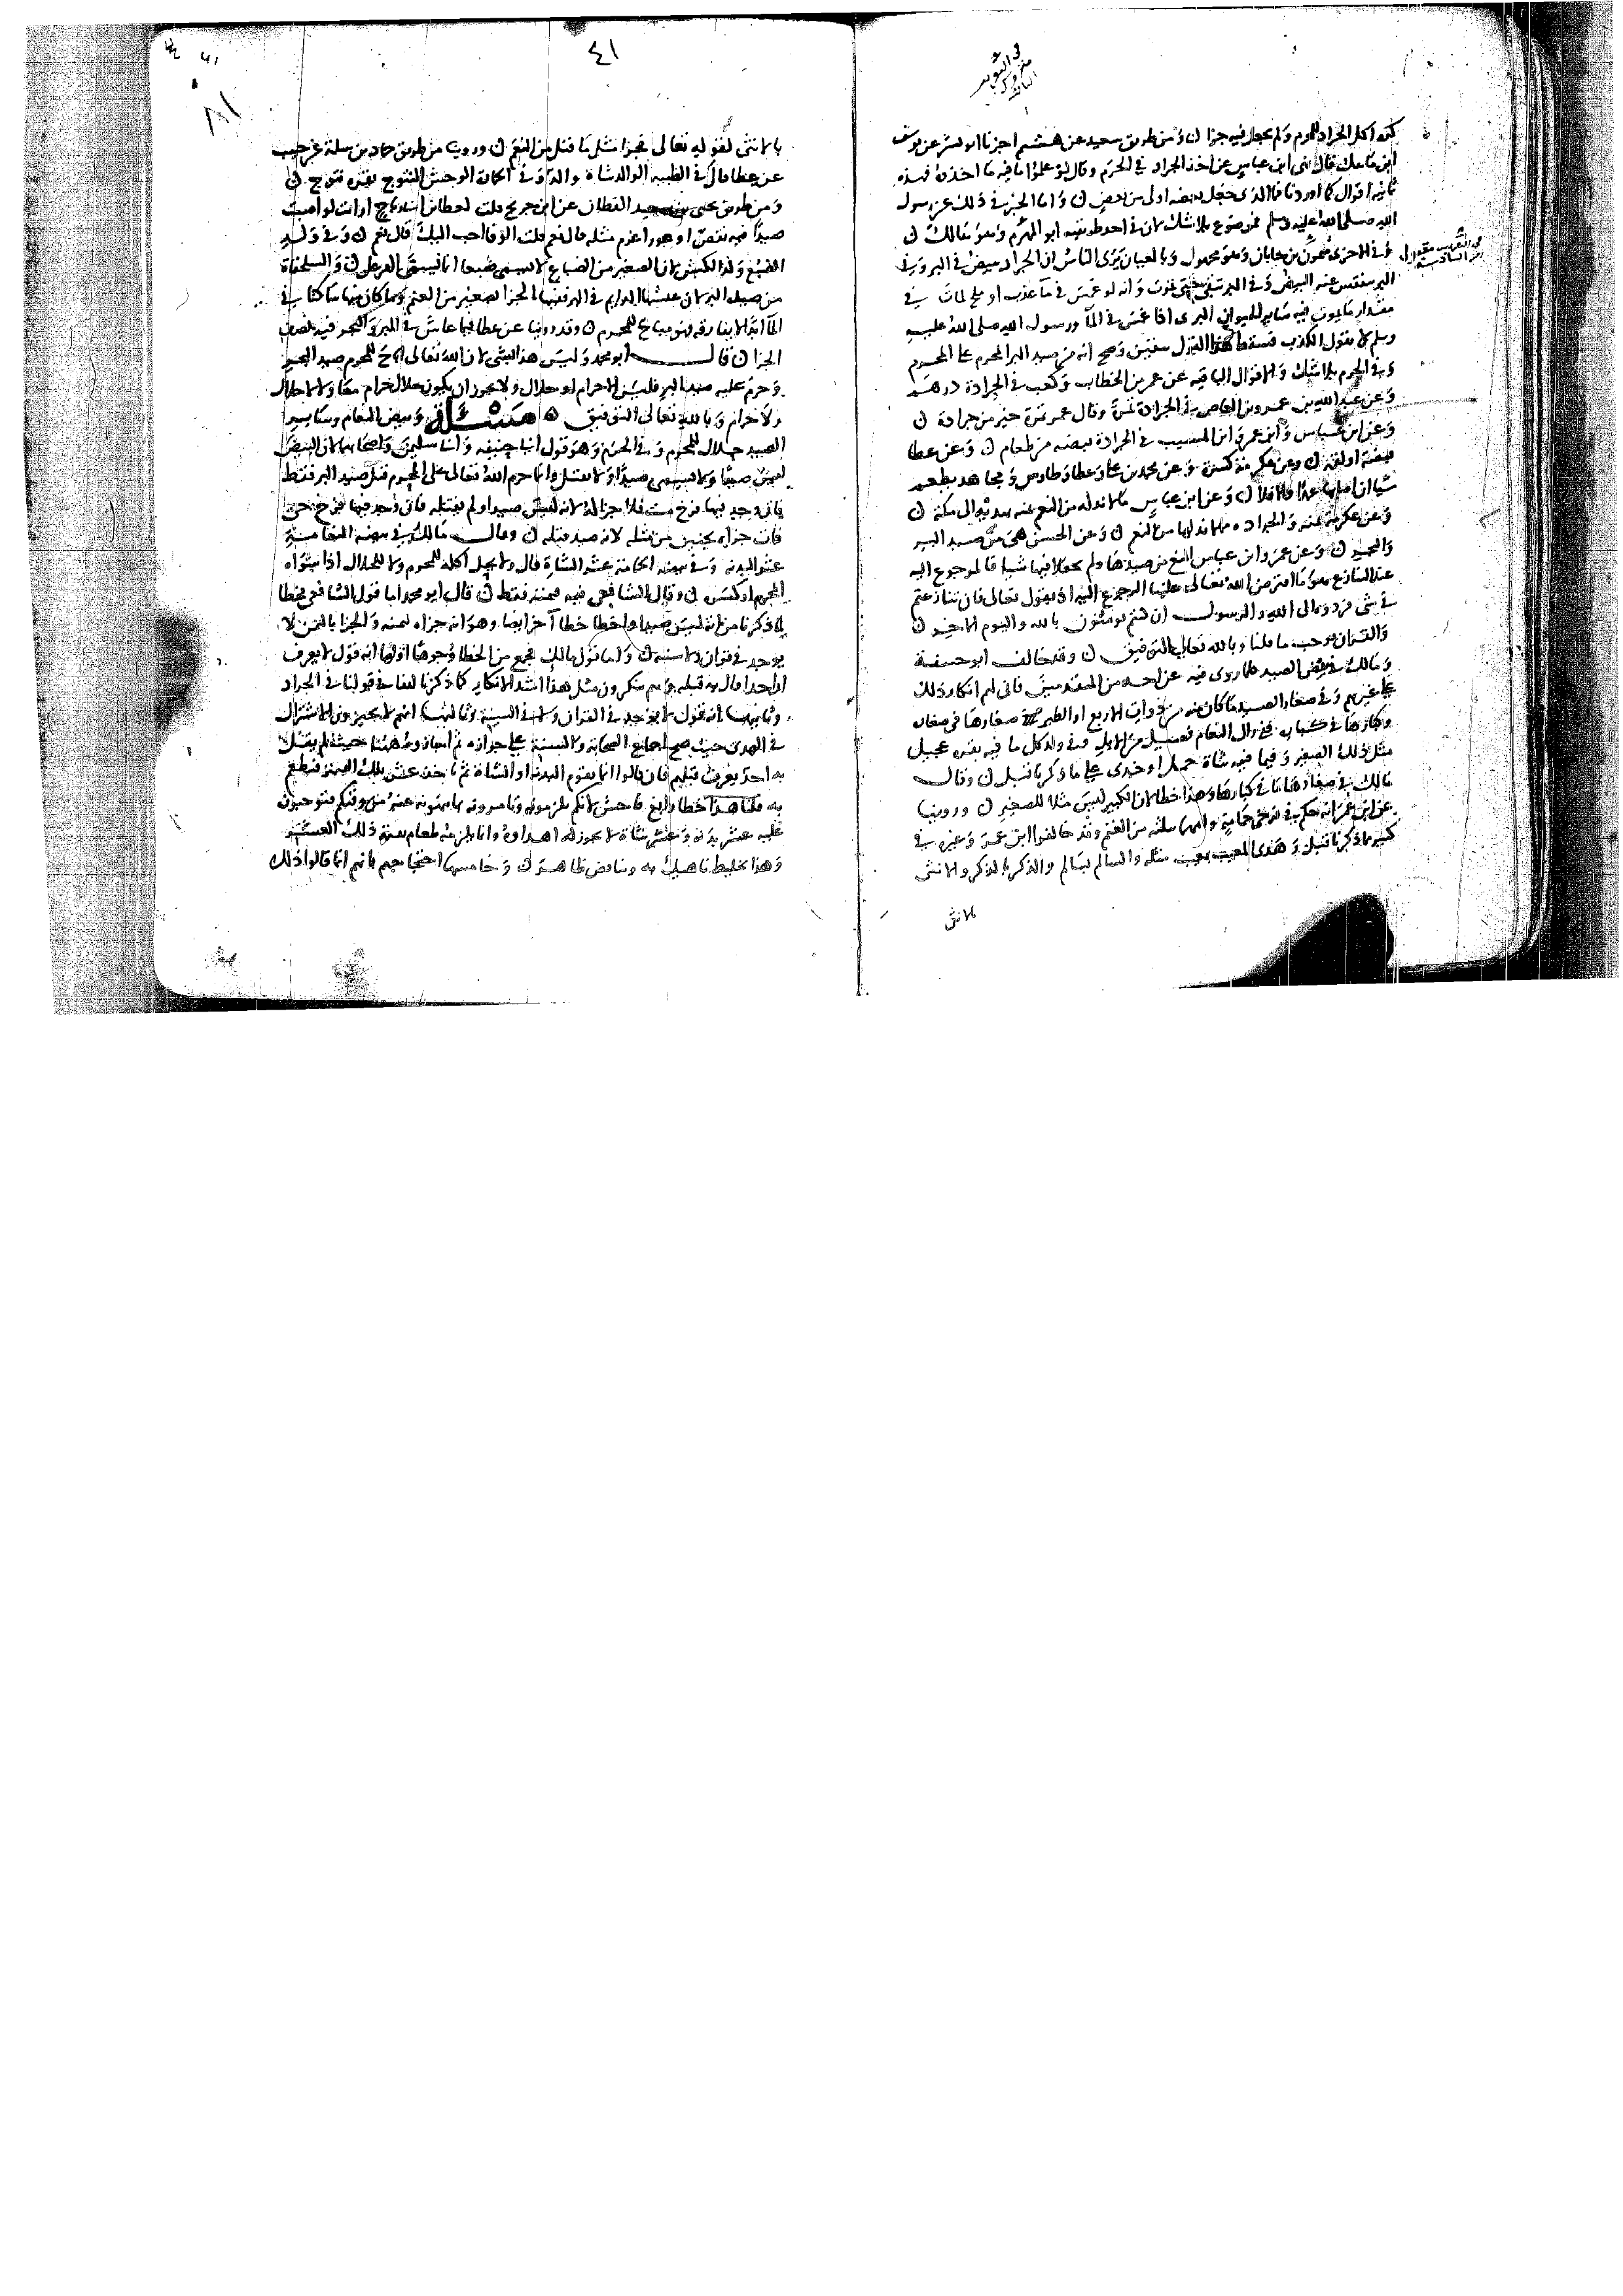 في التقريب
متروك
كره اكل الجراد للمحرم ولم يجعل فيه جزا ن ومن طريق سعيد عن هشيم اخبرنا ابو بشر عن يوسف
ابن ماهك قال نهى ابن عباس عن اخذ الجراد في الحرم وقال لو علموا ما فيه ما اخذوه فهذه
ثمانية اقوال كما اوردنا فما الذي جعل بعضه اولى من بعض ن واما الخبر في ذلك عن رسول
الله صلى الله عليه وسلم فموضوع بلا شك لان في احد طريقيه ابو المهزم وهو هالك ن
وفي الاخرى ميمون بن جابان وهو مجهول وبالعيان يرى الناس ان الجراد يبيض في البر وفي
البر يفقس عنه البيض وفي البر يبقى حتى يموت وانه لو غمس في ما عذب او ملح لمات في
مقدار ما يموت فيه ساير الحيوان البري اذا غمس في الما ورسول الله صلى الله عليه
وسلم لا يقول الكذب فسقط هذا القول بيقين وصح انه من صيد البر المحرم على المحرم
وفي الحرم بلا شك والاقوال الباقيه عن عمر بن الخطاب وكعب في الجرادة درهم
وعن عبد الله بن عمرو بن العاص في الجرادة تمرة وقال عمر تمرة خير من جرادة ن
وعن ابن عباس وابن عمر وابن المسيب في الجرادة قبضه من طعام ن وعن عطا
قبضة او لقمة ن وعن عكرمة كسرة وعن محمد بن علي وعطا وطاوس ومجاهد يطعم
شيا ان اصابها عمدا والا فلا ن وعن ابن عباس ما لا ند له من النعم ففيه هديه الى مكة ن
وعن عكرمة عنه والجراده مما لا ند لها من النعم ن وعن الحسن هي من صيد البر
والبحر ن وعن عمر وابن عباس المنع من صيدها ولم يجعلا فيها شيا فالمرجوع اليه
عند التنازع هو ما افترض الله تعالى علينا الرجوع اليه اذ يقول تعالى فان تنازعتم
في شي فردوه الى الله والرسول ان كنتم تومنون بالله واليوم الاخر ن
والقران يوجب ما قلنا وبالله تعالى التوفيق ن وقد خالف ابو حنيفة
ومالك في بعض الصيد ما روى فيه عن احد من المتقدمين فاين لهم انكار ذلك
على غيرهم وفي صغار الصيد ما كان منه من ذوات الاربع او الطير صغارها في صغاره
وكبارها في كباره ففي رال النعام فصيل من الابل وفي ولد كل ما فيه بقره عجيل
مثل ذلك الصغير وفيما فيه شاة حمل او جدي على ما ذكرنا قبل ن وقال
مالك في صغارها ما في كبارها وهذا خطا لان الكبير ليس مثلا للصغير ن وروينا
عن ابن عمر انه حكم في فرخي حمامة وامهما بثلثه من الغنم وقد خالفوا ابن عمر وغيره في
كثير ما ذكرنا قبل وهدى المعيب بمعيب مثله والسالم بسالم والذكر بالذكر والانثى
بالانثى
٤١
٨١
بالانثى لقوله تعالى فجزا مثل ما قتل من النعم ن وروينا من طريق حماد بن سلمة عن حبيب
عن عطا قال في الظبيه الوالد شاة والد وفي الحمارة الوحش النتوج بقره نتوج ن
ومن طريق يحيى بن سعيد القطان عن ابن جريج قلت لعطا ارايت لو اصبت
صيدا فيه نقص او عور اغرم مثله قال نعم قلت الوفا احب اليك قال نعم ن وفي ولد
الضبع ولد الكبش لان الصغير من الضباع لا يسمى ضبعا انما يسمى الفرعل ن والسلحفاة
من صيد البر لان عيشها الدايم في البر ففيها الجزا بصغير من الغنم وما كان منها ساكنا في
الما ابدا لا يفارقه فهو مباح للمحرم ن وقد روينا عن عطا فيما عاش في البر والبحر فيه نصف
الجزا ن قال ابو محمد وليس هذا بشي لان الله تعالى اباح للمحرم صيد البحر
وحرم عليه صيد البر فليس الا حرام او حلال ولا يجوز ان يكون حلال حرام معا ولا لا حلال
ولا حرام وبالله تعالى التوفيق ه مسئلة وبيض النعام وساير
الصيد حلال للمحرم وفي الحرم وهو قول ابي حنيفه وابي سليمن واصحابهما لان البيض
ليس صيدا ولا يسمى صيدا ولا يقتل وانما حرم الله تعالى على المحرم قتل صيد البر فقط
فان وجد فيها فرخ ميت فلا جزا له لانه ليس صيدا ولم يقتله فان وجد فيها فرخ حي
فمات جزاه بجنين من مثله لانه صيد قتله ن وقال مالك في بيضه النعامة
عشر البدنه وفي بيضه الحمامة عشر الشاة قال ولا يحل اكله للمحرم ولا للحلال اذا شواه
المحرم او كسره ن وقال الشافعي فيه قيمته فقط ن قال ابو محمد اما قول الشافعي فخطا
لما ذكرنا من انه ليس صيدا واخطا خطا آخر ايضا وهو انه جزاه بثمنه والجزا بالثمن لا
يوجد في قران ولا سنه ن واما قول مالك فجمع من الخطا وجوها اولها انه قول لا يعرف
ان احدا قال به قبله وهم ينكرون مثل هذا اشد الانكار كما ذكرنا انفا في قولنا في الجراد
وثانيها انه قول لا يوجد في القران ولا في السنة وثالثها انهم لا يجيزون الاشتراك
في الهدى حيث صح اجماع الصحابة والسنة على جوازه ثم اجازوه ههنا حيث لم يقل
به احد يعرف قبلهم فان قالوا انما يقوم البدنه او الشاة ثم ياخذ عشر تلك القيمة فيطعم
به قلنا هذا خطا رابع فاحش لانكم تلزمونه وتامرونه بما تنهونه عنه من وقتكم فتوجبون
عليه عشر بدنه وعشر شاة لا يجوز له اهداوه وانما يلزمه طعام بقيمة ذلك العشر
وهذا تخليط ناهيك به وتناقض ظاهر ن وخامسها احتجاجهم بانهم انما قالوا ذلك